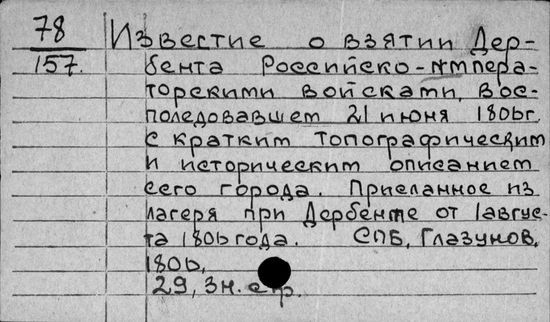 78
157.
Известие о взятии Дер-
бента Российско-импера-
торскими войсками, вос-
последовавшем 21 июня 1806г.
с кратким топографическим
и историческим описанием
сего города. Присланное из
лагеря при Дербенте от 1 авгус-
та 1806 года. СПБ, Глазунов,
1806,
29, 3н. стр.